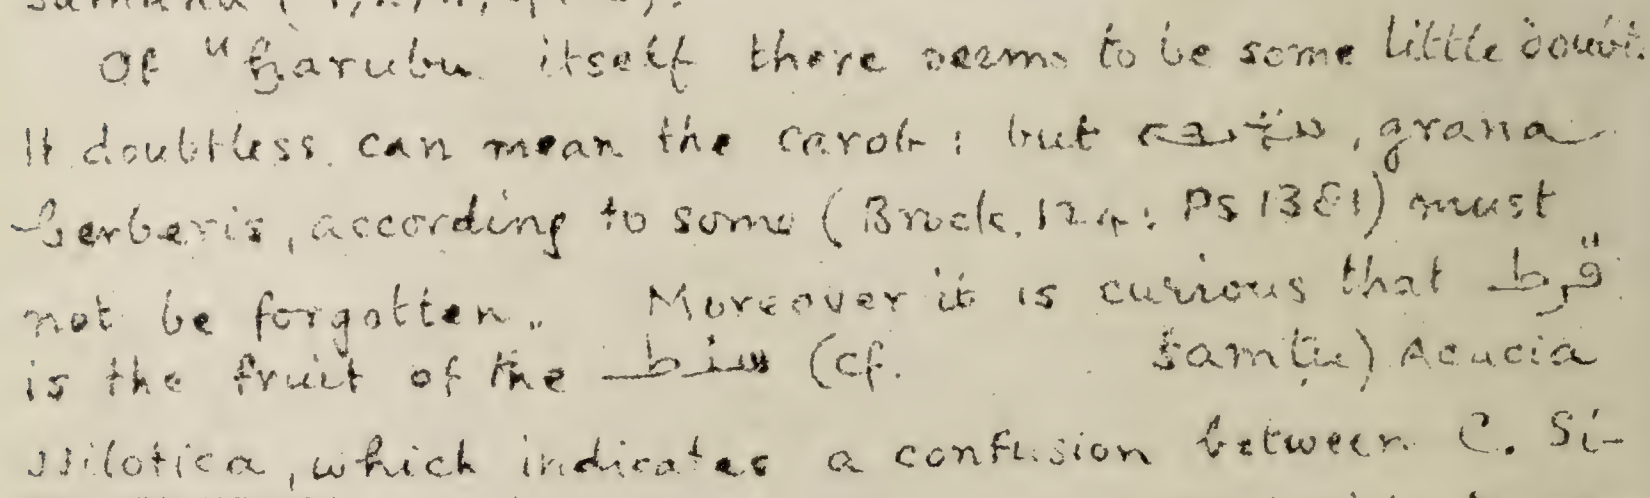 Of ᵘḫarubu itself there seems to be some little doubt.
It doubtless can mean the carob: but , grana
berberis, according to some (Brock. 124: PS 1381) must
not be forgotten. Moreover it is curious that قرط
is the fruit of the سنط (cf. samṭu) Acacia
Nilotica, which indicates a confusion between C. Si-